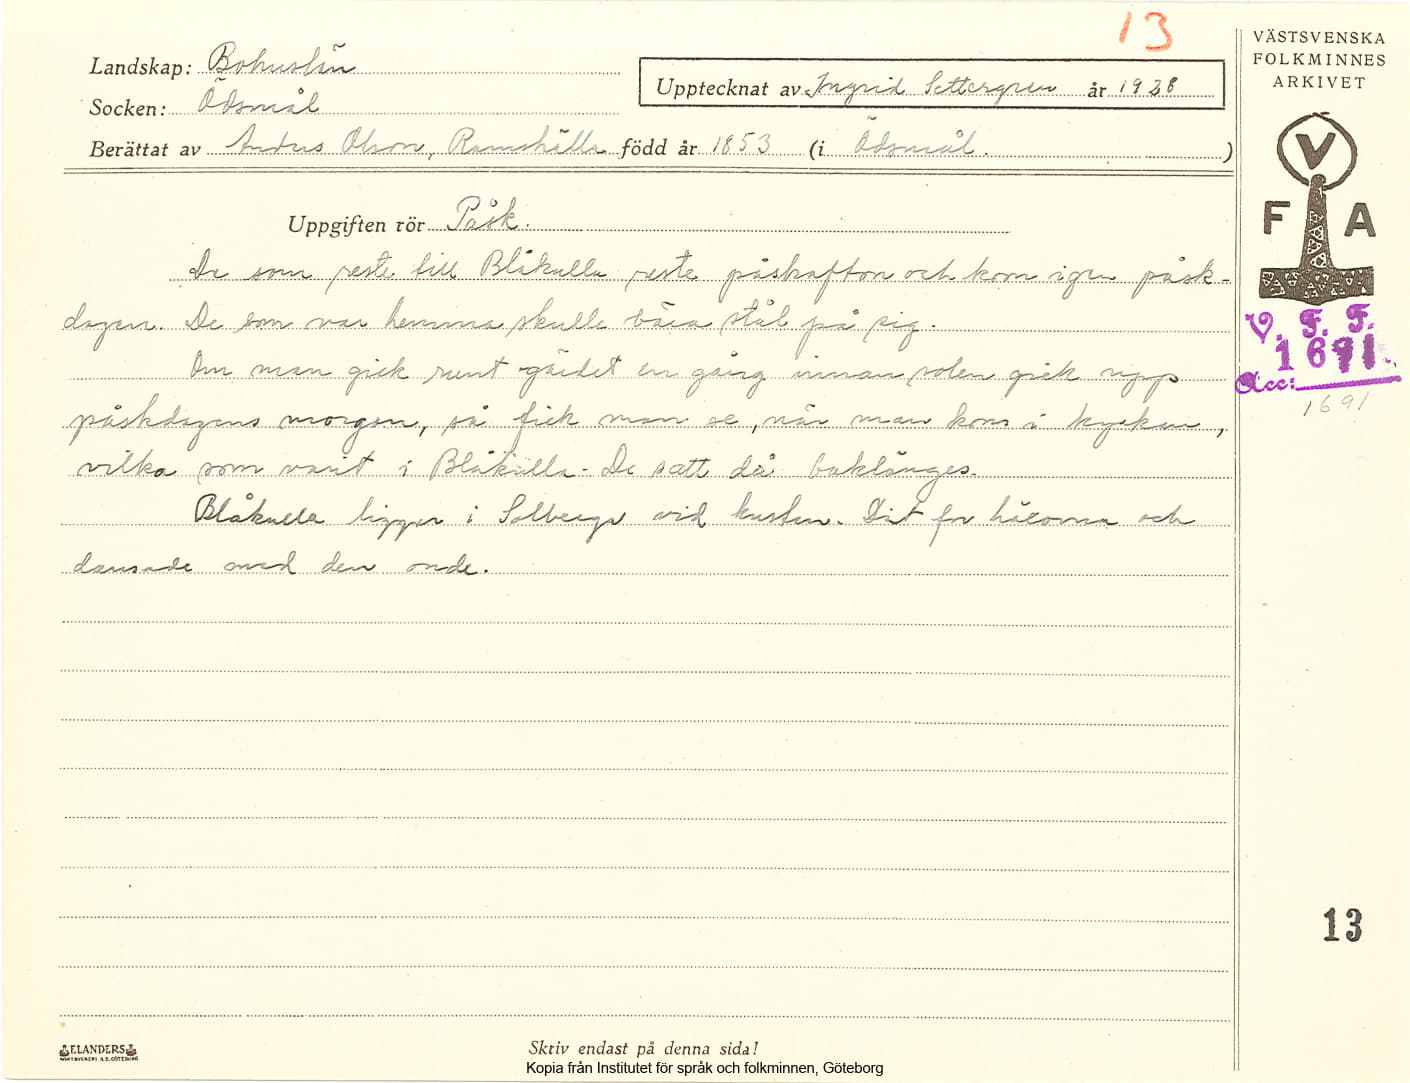 13
Landskap: Bohuslän
Socken: Ödsmål
Upptecknat av Ingrid Settergren år 1928
Berättat av Anders Olson, Ramshälla född år 1853 (i Ödsmål. )
Uppgiften rör Påsk.
De som reste till Blåkulla reste påskafton och kom igen påsk-
dagen. De som var hemma skulle bära stål på sig.
Om man gick runt gärdet en gång innan solen gick upp
påskdagens morgon, så fick man se, när man kom i kyrkan,
vilka som varit i Blåkulla. De satt då baklänges.
Blåkulla ligger i Solberga vid kusten. Dit for häxorna och
dansade med den onde.
VÄSTSVENSKA
FOLKMINNES
ARKIVET
V
F A
V. F. F.
1691
Acc:
1691
13
ELANDERS
Skriv endast på denna sida!
Kopia från Institutet för språk och folkminnen, Göteborg